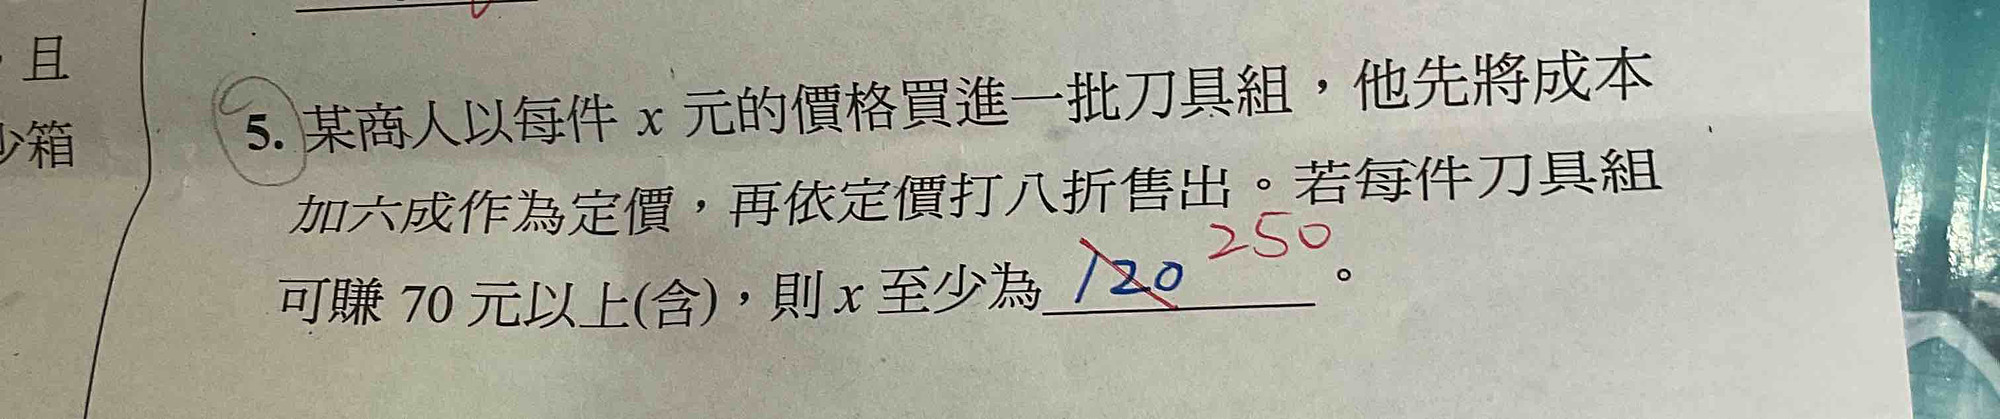 ，且
少箱
5. 某商人以每件 x 元的價格買進一批刀具組，他先將成本
加六成作為定價，再依定價打八折售出。若每件刀具組
可賺 70 元以上(含)，則 x 至少為 120 250 。